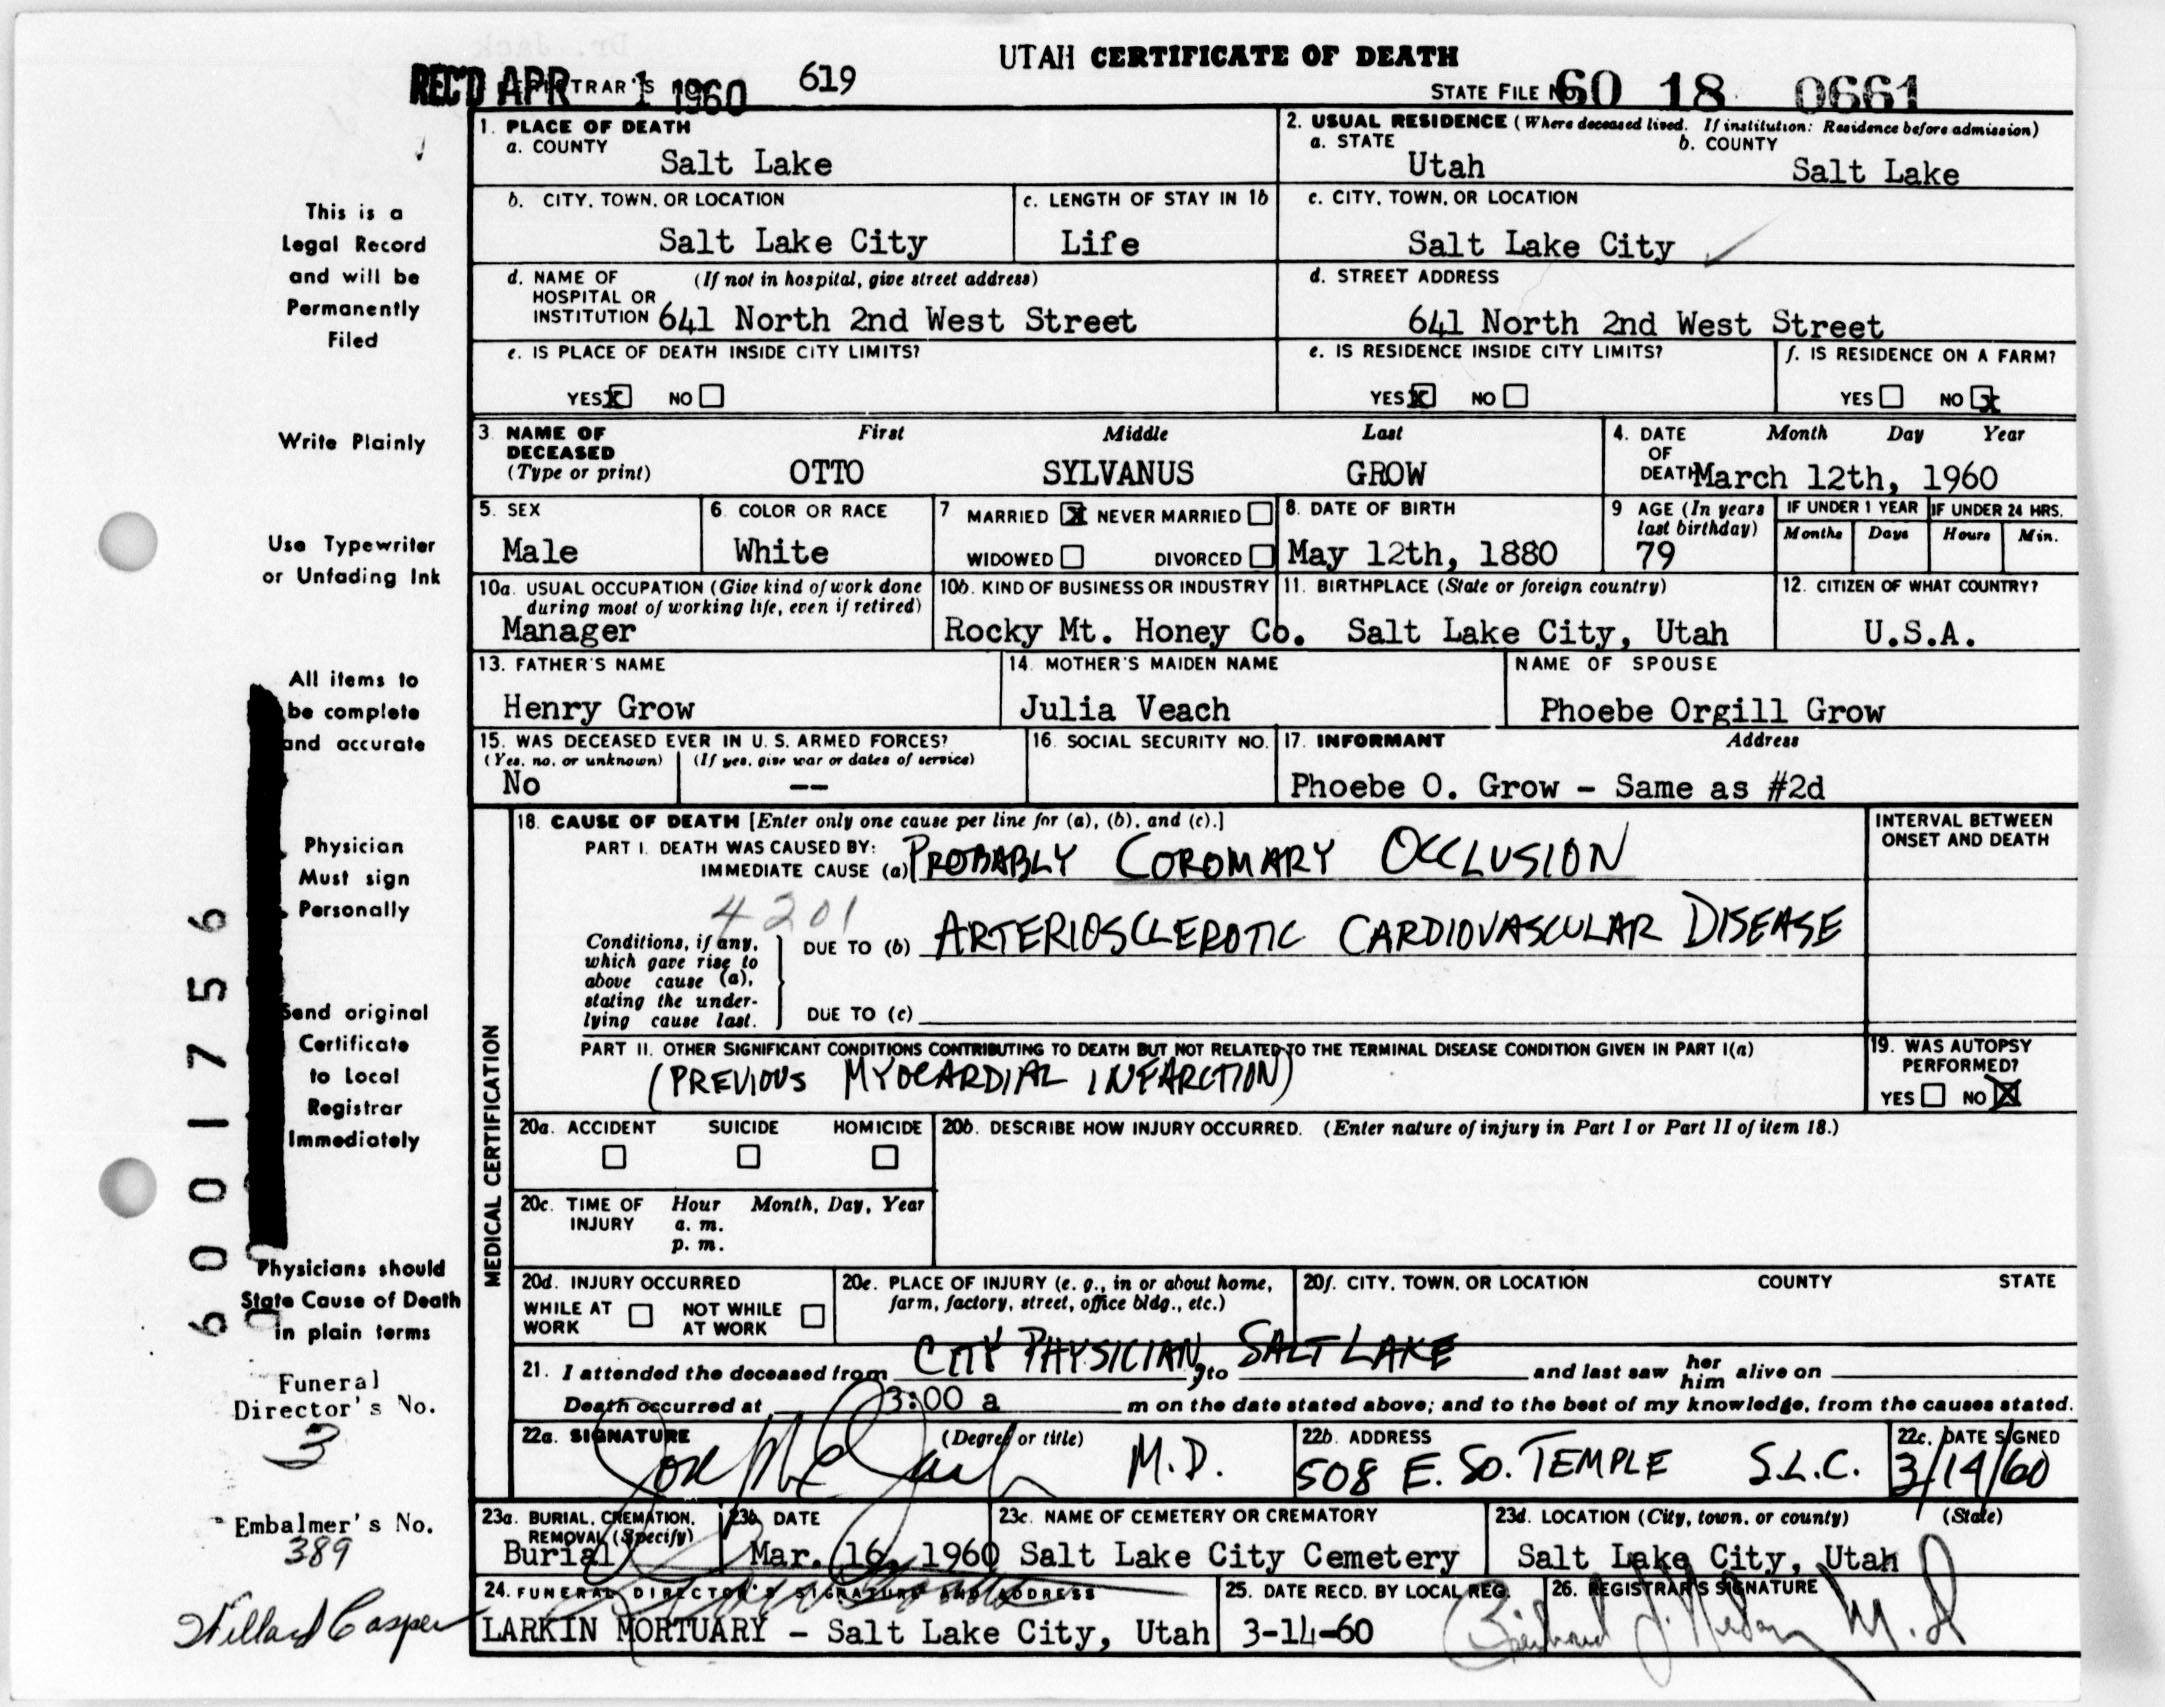 UTAH CERTIFICATE OF DEATH
REC'D APR 1 1960 TRAR'S 619 STATE FILE No. 60 18 0661
1. PLACE OF DEATH
a. COUNTY
Salt Lake
2. USUAL RESIDENCE (Where deceased lived. If institution: Residence before admission)
a. STATE b. COUNTY
Utah Salt Lake
b. CITY, TOWN, OR LOCATION
Salt Lake City
c. LENGTH OF STAY IN 1b
Life
c. CITY, TOWN, OR LOCATION
Salt Lake City
d. NAME OF (If not in hospital, give street address)
HOSPITAL OR
INSTITUTION 641 North 2nd West Street
d. STREET ADDRESS
641 North 2nd West Street
e. IS PLACE OF DEATH INSIDE CITY LIMITS?
YES X NO
e. IS RESIDENCE INSIDE CITY LIMITS?
YES X NO
f. IS RESIDENCE ON A FARM?
YES NO X
3. NAME OF DECEASED First Middle Last
(Type or print) OTTO SYLVANUS GROW
4. DATE Month Day Year
OF
DEATH March 12th, 1960
5. SEX
Male
6. COLOR OR RACE
White
7 MARRIED X NEVER MARRIED
WIDOWED DIVORCED
8. DATE OF BIRTH
May 12th, 1880
9 AGE (In years
last birthday)
79
IF UNDER 1 YEAR IF UNDER 24 HRS.
Months Days Hours Min.
10a. USUAL OCCUPATION (Give kind of work done
during most of working life, even if retired)
Manager
10b. KIND OF BUSINESS OR INDUSTRY
Rocky Mt. Honey Co.
11. BIRTHPLACE (State or foreign country)
Salt Lake City, Utah
12. CITIZEN OF WHAT COUNTRY?
U.S.A.
13. FATHER'S NAME
Henry Grow
14. MOTHER'S MAIDEN NAME
Julia Veach
NAME OF SPOUSE
Phoebe Orgill Grow
15. WAS DECEASED EVER IN U. S. ARMED FORCES?
(Yes, no, or unknown) (If yes, give war or dates of service)
No --
16. SOCIAL SECURITY NO.
17. INFORMANT Address
Phoebe O. Grow - Same as #2d
MEDICAL CERTIFICATION
18. CAUSE OF DEATH [Enter only one cause per line for (a), (b), and (c).]
PART I. DEATH WAS CAUSED BY:
IMMEDIATE CAUSE (a) PROBABLY COROMARY OCCLUSION
4201
Conditions, if any,
which gave rise to
above cause (a),
stating the under-
lying cause last.
DUE TO (b) ARTERIOSCLEROTIC CARDIOVASCULAR DISEASE
DUE TO (c)
INTERVAL BETWEEN
ONSET AND DEATH
PART II. OTHER SIGNIFICANT CONDITIONS CONTRIBUTING TO DEATH BUT NOT RELATED TO THE TERMINAL DISEASE CONDITION GIVEN IN PART I(a)
(PREVIOUS MYOCARDIAL INFARCTION)
19. WAS AUTOPSY
PERFORMED?
YES NO X
20a. ACCIDENT SUICIDE HOMICIDE
20b. DESCRIBE HOW INJURY OCCURRED. (Enter nature of injury in Part I or Part II of item 18.)
20c. TIME OF Hour Month, Day, Year
INJURY a. m.
p. m.
20d. INJURY OCCURRED
WHILE AT NOT WHILE
WORK AT WORK
20e. PLACE OF INJURY (e. g., in or about home,
farm, factory, street, office bldg., etc.)
20f. CITY, TOWN, OR LOCATION COUNTY STATE
21. I attended the deceased from CITY PHYSICIAN, to SALT LAKE and last saw her him alive on
Death occurred at 3:00 a m on the date stated above; and to the best of my knowledge, from the causes stated.
22a. SIGNATURE (Degree or title)
M.D.
22b. ADDRESS
508 E. SO. TEMPLE S.L.C.
22c. DATE SIGNED
3/14/60
23a. BURIAL, CREMATION,
REMOVAL (Specify)
Burial
23b. DATE
Mar. 16, 1960
23c. NAME OF CEMETERY OR CREMATORY
Salt Lake City Cemetery
23d. LOCATION (City, town, or county) (State)
Salt Lake City, Utah
24. FUNERAL DIRECTOR'S SIGNATURE AND ADDRESS
LARKIN MORTUARY - Salt Lake City, Utah
25. DATE RECD. BY LOCAL REG.
3-14-60
26. REGISTRAR'S SIGNATURE
M.D
This is a
Legal Record
and will be
Permanently
Filed
Write Plainly
Use Typewriter
or Unfading Ink
All items to
be complete
and accurate
Physician
Must sign
Personally
Send original
Certificate
to Local
Registrar
Immediately
Physicians should
State Cause of Death
in plain terms
6001756
Funeral
Director's No.
3
Embalmer's No.
389
Willard Casper